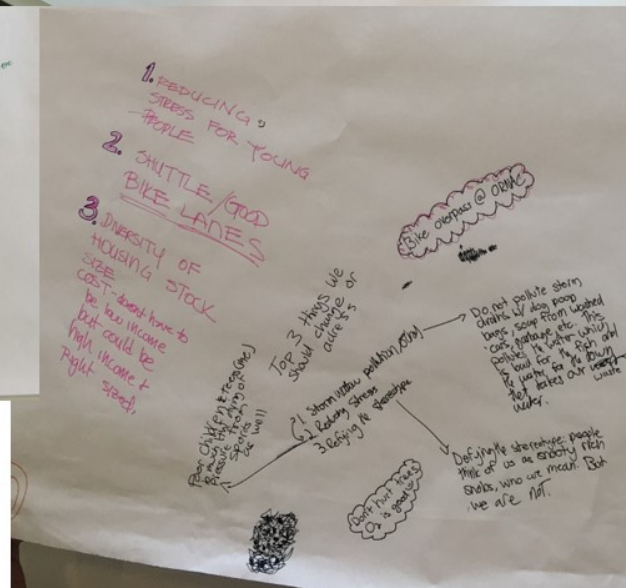 1. REDUCING
STRESS FOR YOUNG
PEOPLE
2. SHUTTLE/GOOD
BIKE LANES
3. DIVERSITY OF
HOUSING STOCK
SIZE
COST - doesn't have to
be low income
but could be
high income &
right sized.
Bike overpass @ ORINAC
Top 3 things we
should change or
address
1 Storm water pollution
2 Reducing stress
3 Defying the stereotype
Do not pollute storm
drains w/ dog poop
bags, soap from washed
cars, garbage etc. This
pollutes the water which
is bad for the fish and
the water for the town
that takes our waste
water.
Defying the stereotype: people
think of us as snooty rich
snobs, who are mean. But
we are not.
Poor children stress
much
pressure
sports
as well
Don't hurt trees
O2 is good